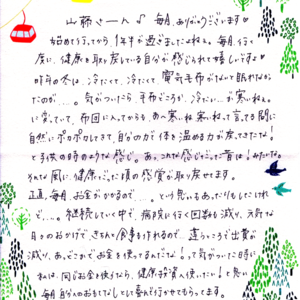 山崎さーん♪ 毎月、ありがとうございます♡
始めて行ってから、1年半が過ぎましたよねぇ。毎月、行く
度に、健康を取り戻している自分が感じられて嬉しいですよ♡
昨年の冬は、冷たくて、冷たくて電気毛布がないと眠れなかっ
たのが…。気がついたら、毛布どころか、冷たい…が寒いねぇ。
に変っていて、布団に入ってから、あ〜寒い寒いねぇ、って言ってる間に
自然にポカポカしてきて、自分の力で体を温める力が戻ってきたな!
と子供の時のような感じ。あっ、こんな感じだった昔は!みたいなね
それな風に、健康だった頃の感覚が取り戻せます。
正直、毎月、お金がかかるので…。という思いもあったりもしたけれ
ど…。継続していく中で、病院に行く回数も減り、元気な
日々のおかげで、きちんと食事も作れるので、違うところで出費が
減り、あっ、どこかでお金を使ってるんだな!って気がついた時に
私は、同じお金を使うなら、健康投資に使いたい!と思い
毎月自分へのおもてなしとし喜んで行かせてもらってます。